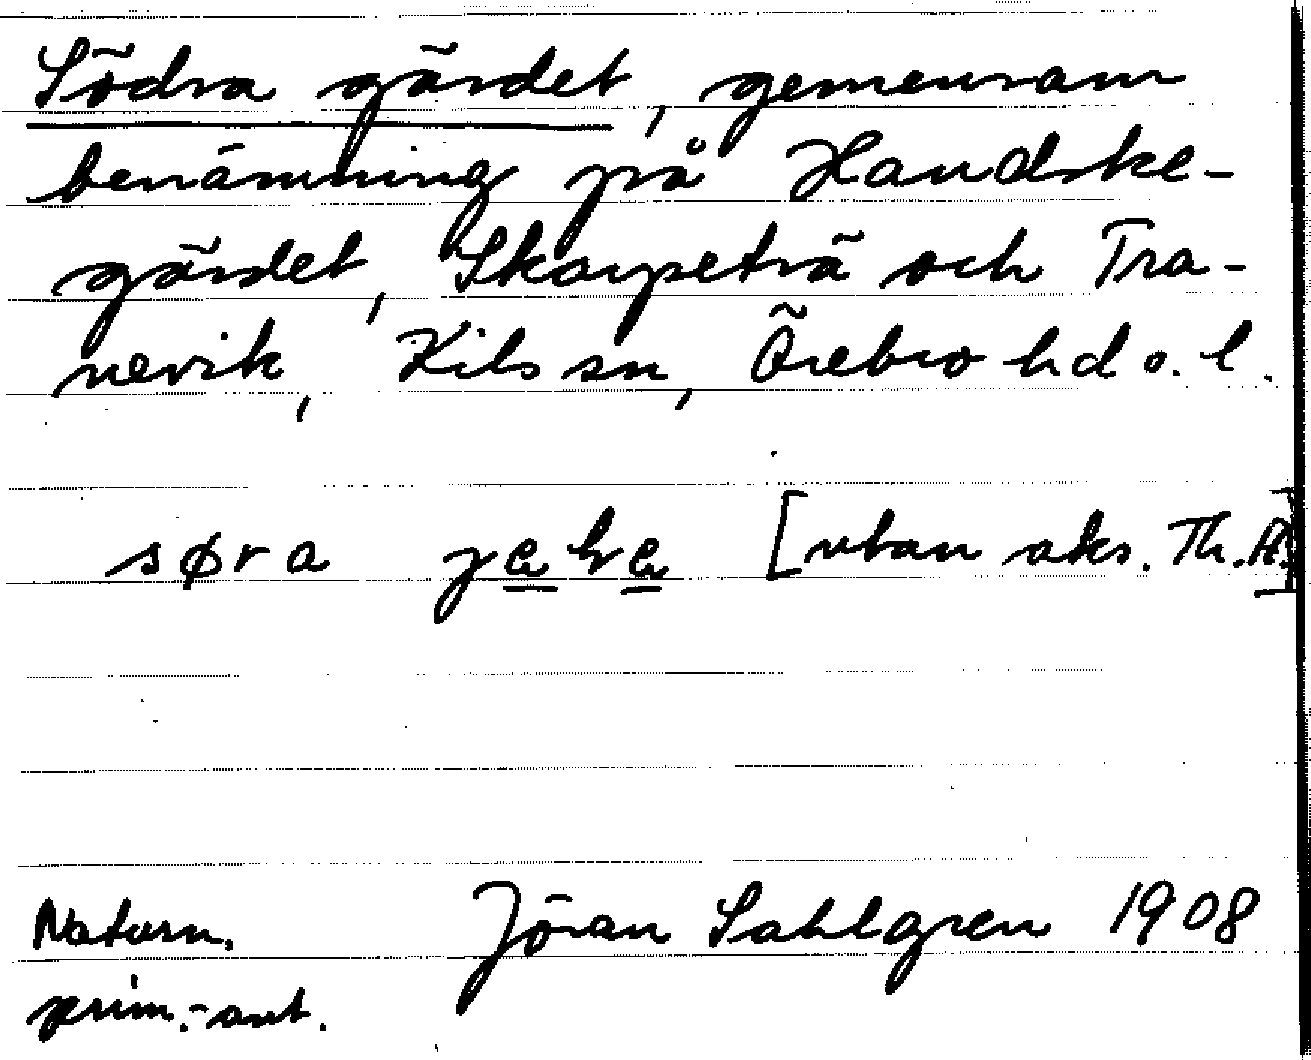 Södra gärdet, gemensam
benämning på Handske-
gärdet, Skarpeträ och Tra-
nevik, Kils sn, Örebro hd o. l.
søra [utan aks. Th. A]
Naturn. Jöran Sahlgren 1908
prim.-ant.